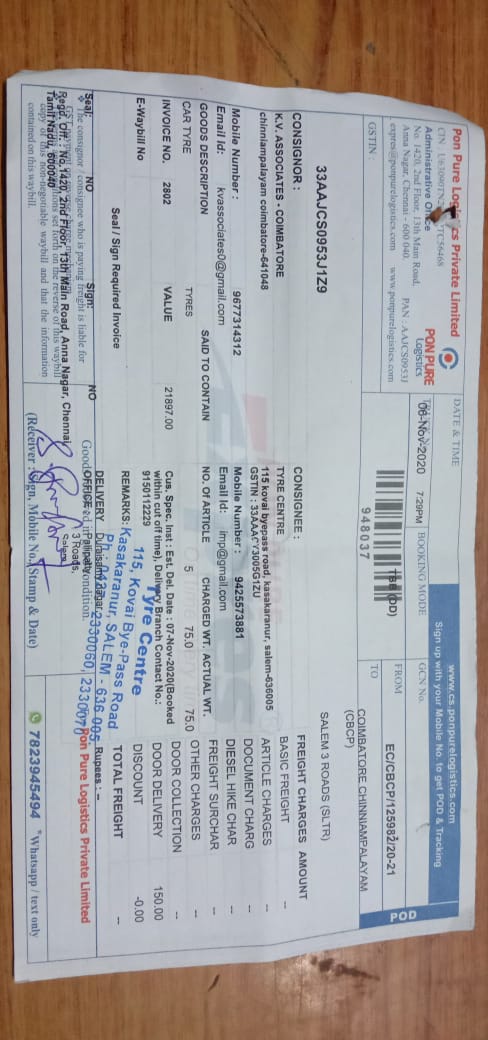 Pon Pure Logistics Private Limited
TC56468
Administrative Office
No. 1420, 2nd Floor, 13th Main Road,
Anna Nagar, Chennai - 600 040. PAN : AAJCS0953J
expres@ponpurelogistics.com www.ponpurelogistics.com
PON PURE
Logistics
DATE & TIME
06-Nov-2020 7:29PM
BOOKING MODE
TBB (DD)
948037
www.cs.ponpurelogistics.com
Sign up with your Mobile No. to get POD & Tracking
GCN No.
EC/CBCP/125982/20-21
POD
GSTIN :
33AAJCS0953J1Z9
FROM
COIMBATORE CHINNIAMPALAYAM
(CBCP)
TO
SALEM 3 ROADS (SLTR)
CONSIGNOR :
K.V. ASSOCIATES - COIMBATORE
chinniampalayam coimbatore-641048
Mobile Number : 9677314312
Email Id: kvassociates0@gmail.com
CONSIGNEE :
TYRE CENTRE
115 kovai byepass road, kasakaranur, salem-636005
Mobile Number : 9425573881
FREIGHT CHARGES AMOUNT
BASIC FREIGHT --
ARTICLE CHARGES --
DOCUMENT CHARG --
DIESEL HIKE CHAR --
FREIGHT SURCHAR --
OTHER CHARGES --
DOOR COLLECTION --
DOOR DELIVERY 150.00
DISCOUNT -0.00
TOTAL FREIGHT --
Rupees : --
GOODS DESCRIPTION SAID TO CONTAIN NO. OF ARTICLE CHARGED WT. ACTUAL WT.
CAR TYRE TYRES 5 75.0 75.0
INVOICE NO. 2802 VALUE 21897.00
Cus. Spec. Inst : Est. Del. Date : 07-Nov-2020(Booked
within cut off time), Delivery Branch Contact No.:
9150112229
E-Waybill No
REMARKS:
Seal / Sign Required Invoice
Tyre Centre
115, Kovai Bye-Pass Road
Kasakaranur, SALEM - 636 005.
2330060,
Seal: NO Sign: NO
The consignor / consignee who is paying freight is liable for
Regd. Off: No. 1420, 2nd Floor, 13th Main Road, Anna Nagar, Chennai
Tamil Nadu, 600040
copy of this non-negotiable waybill and that the information
contained on this waybill.
DELIVERY
OFFICE :
3 Roads,
Pon Pure Logistics Private Limited
(Receiver : Sign, Mobile No., Stamp & Date)
7823945494 *Whatsapp / text only